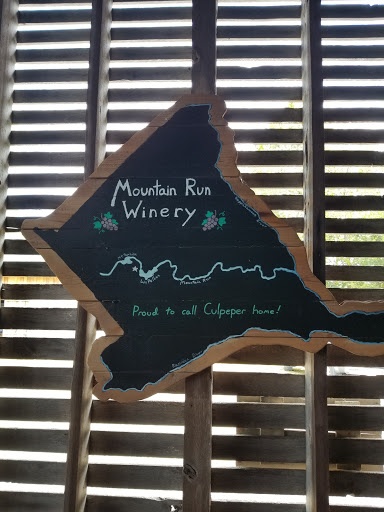 Mountain Run
Winery
Mountain Run
Proud to call Culpeper home!